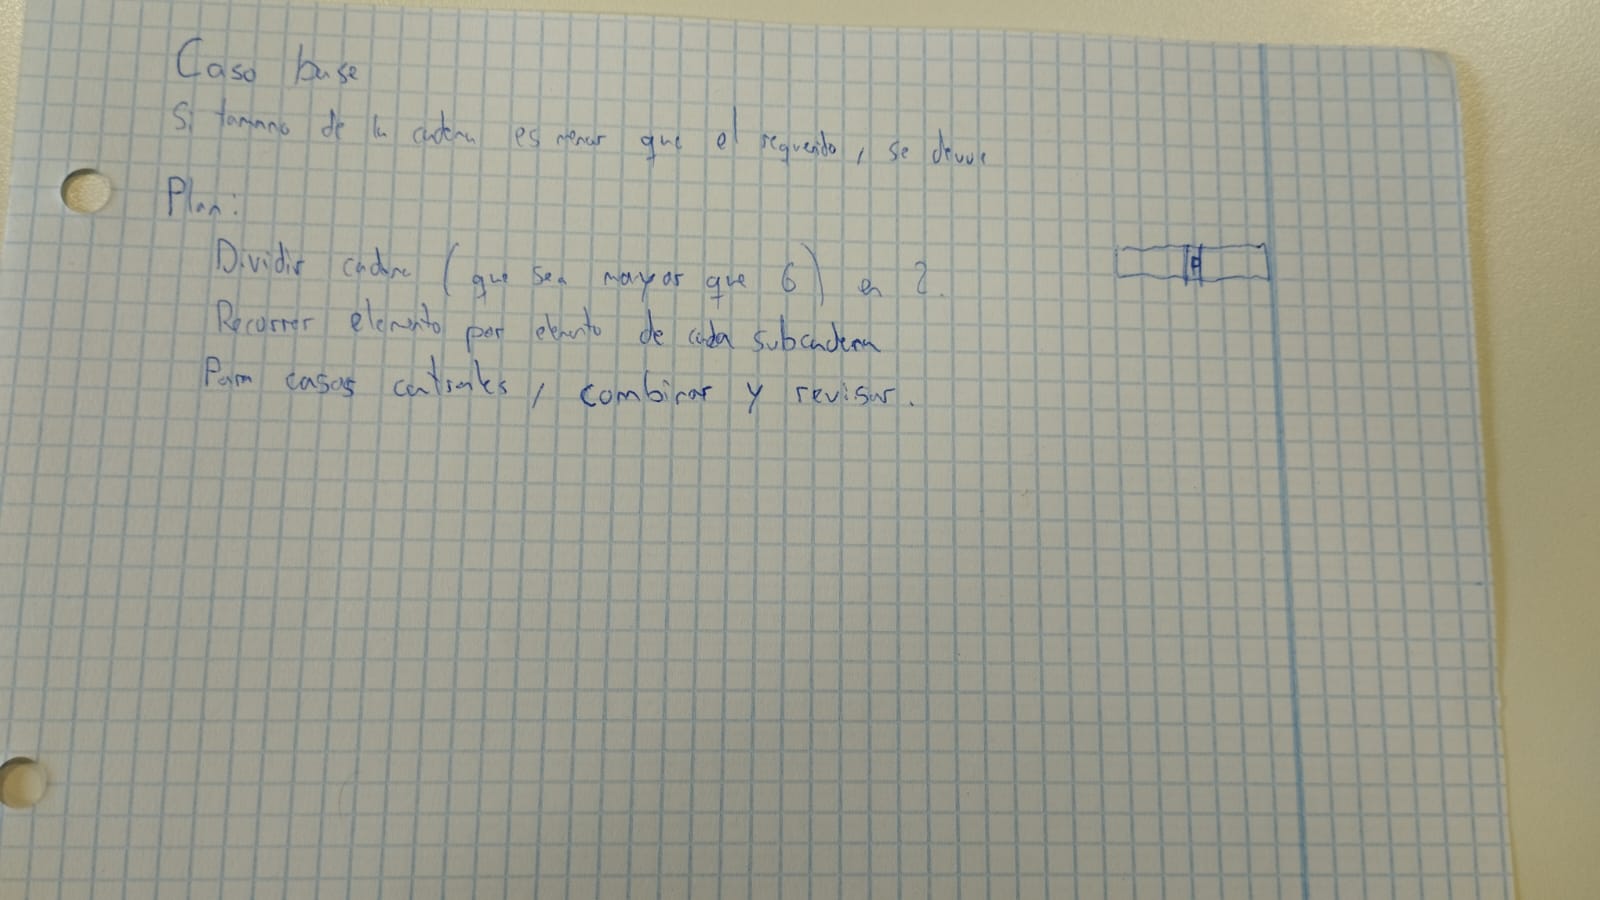 Caso base
Si tamano de la cadena es menor que el requerido, se devuve
Plan:
Dividir cadena (que sea mayor que 6) en 2.
Recorrer elemento por elemento de cada subcadena
Para casos centrales, combinar y revisar.